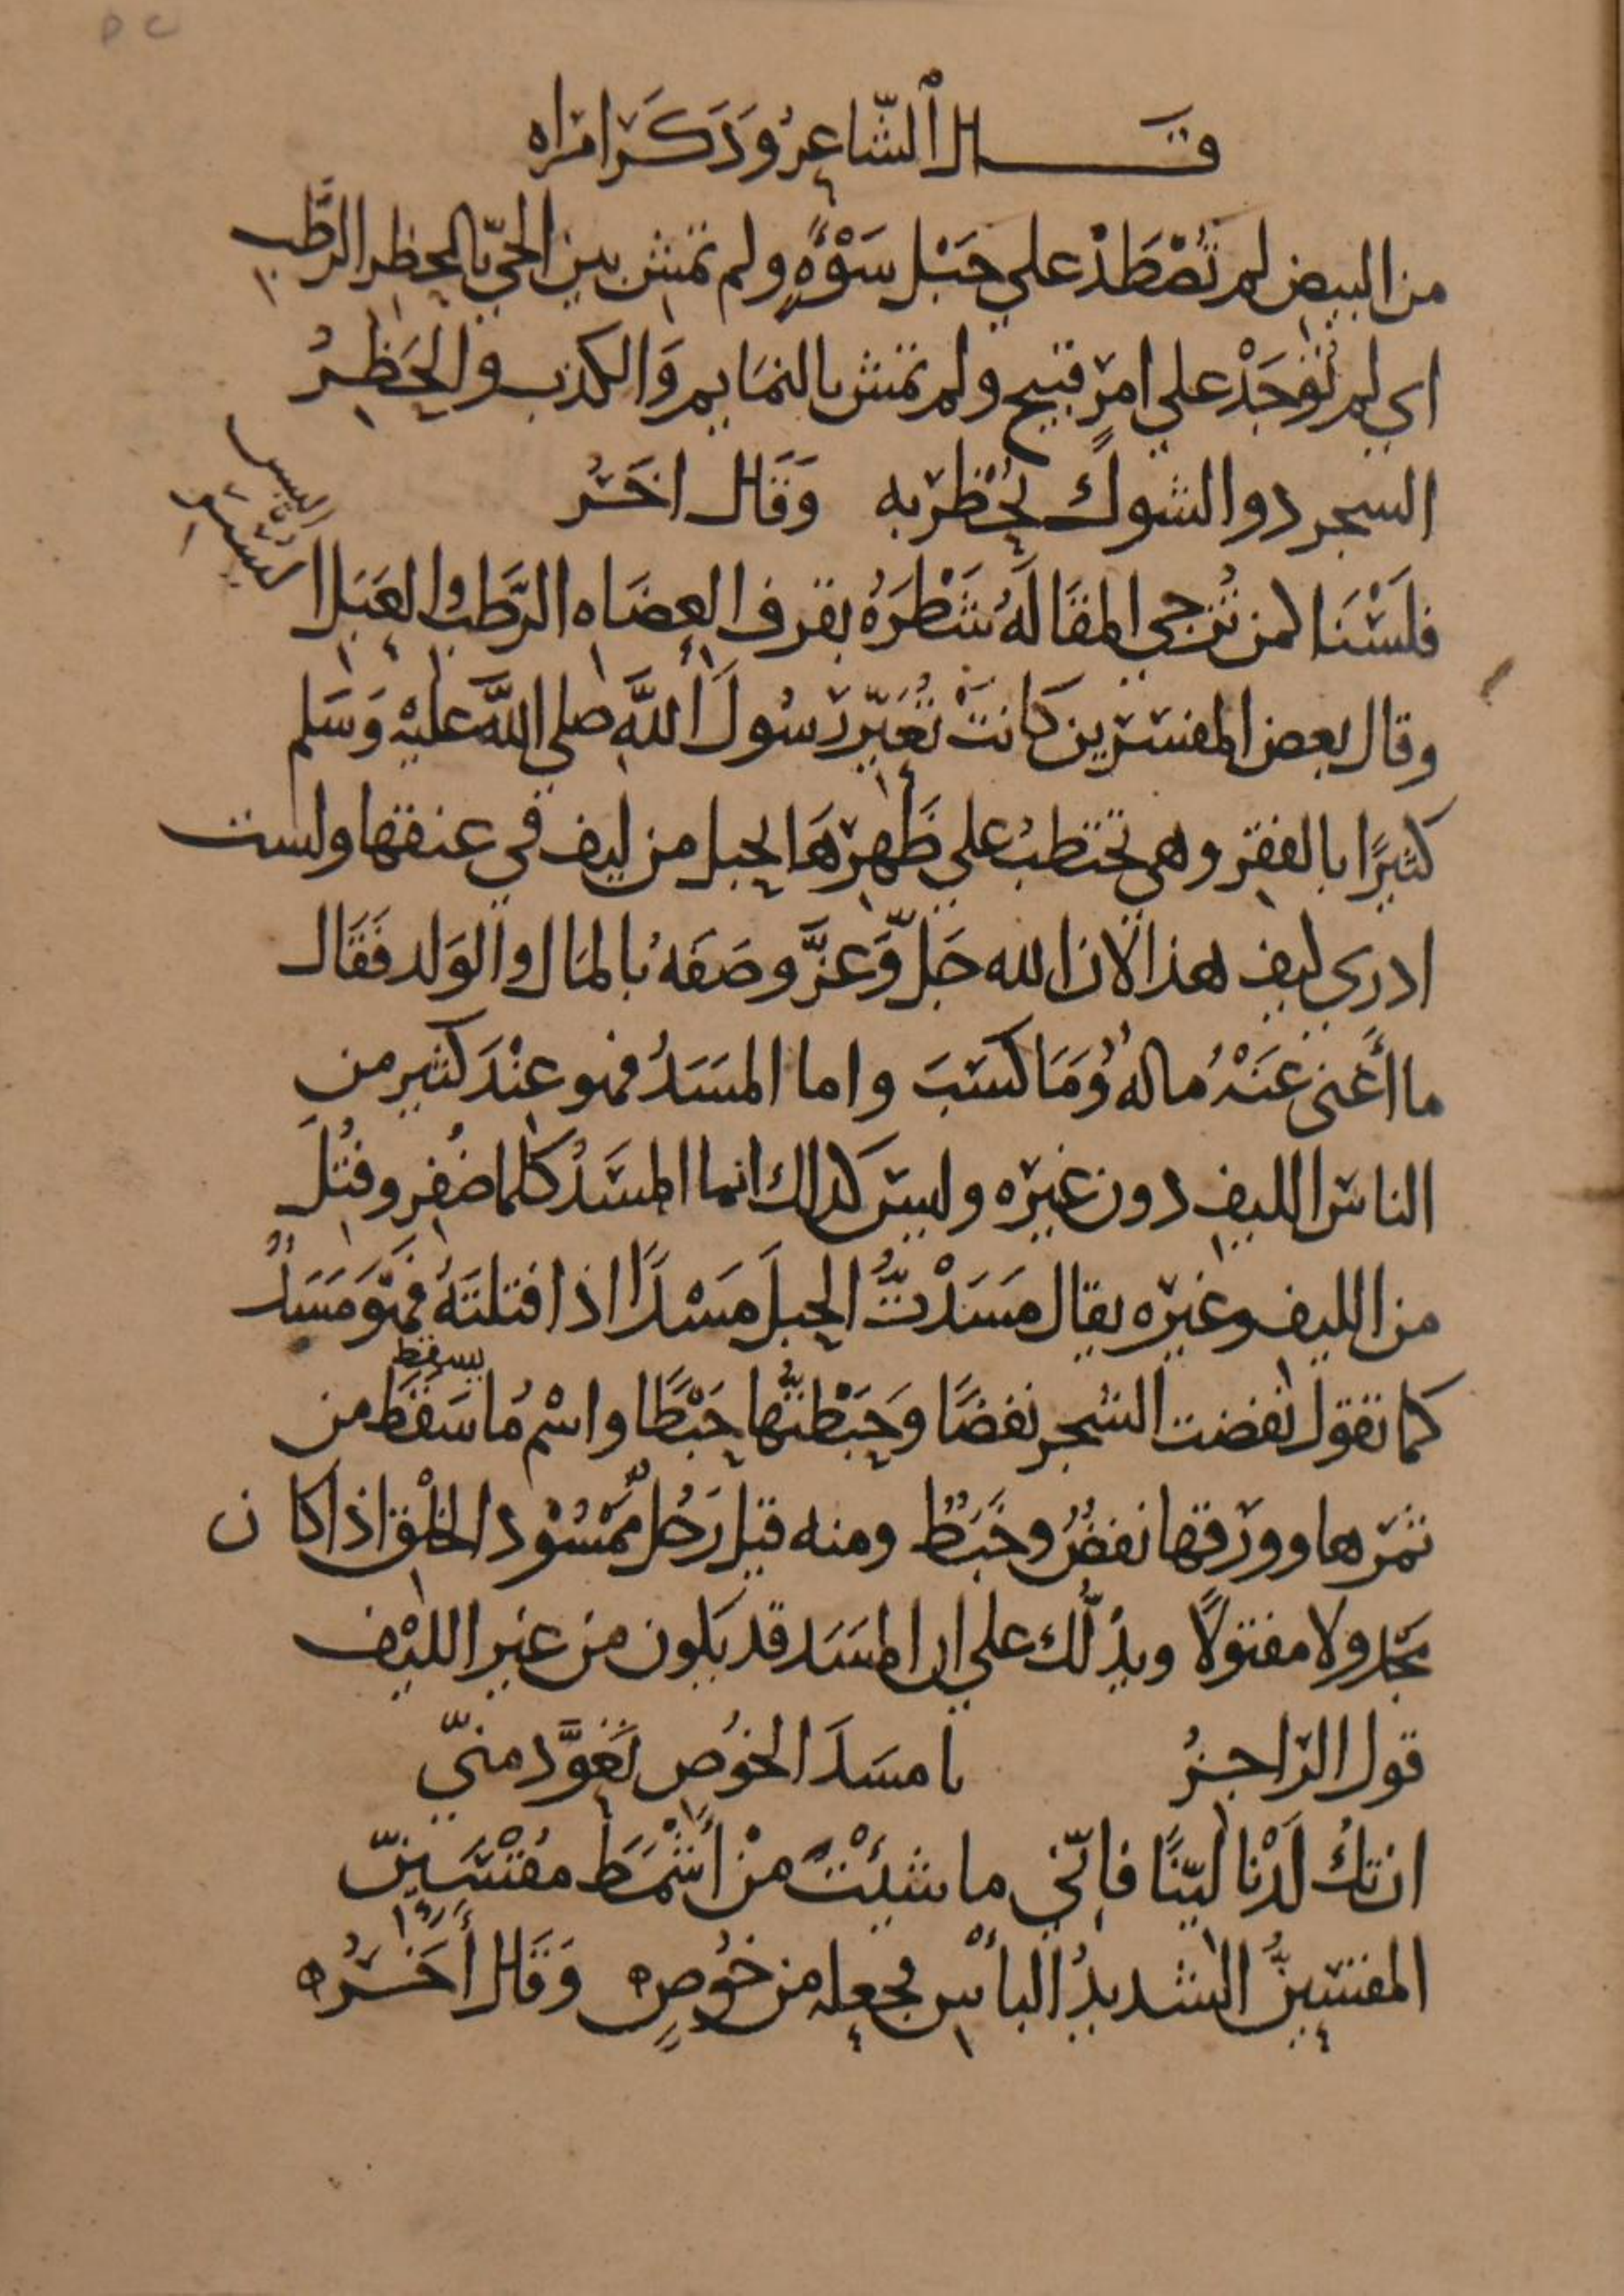 قال الشّاعِرُ وَذَكَرَ امراه
من البيض لم تُصْطَدْ علي حَبْل سَوْءَةٍ ولم تمش بين الحيّ بالحظِر الرَّطْبِ
اي لم تُوْجَدْ علي امرٍ قبيح ولم تمش بالنمَايم وَالكذب والحَظِرُ
السجر ذو الشوكِ يُحْظَر به وَقَال اخَرُ
فلَسْنَا لمن تُزجي المقَالَةُ شَطْرَهُ بقرف العِضَاه الرَّطْب والعَبَل
اليبس
وقال بعض المفسّرين كَانَتْ تُعَيّر رَسُولَ اللَّهِ صلي اللَّه عليْهِ وَسَلم
كثيرًا بالفقر وهي تحتطبُ علي ظَهرهَا بحبل من ليف في عنقها ولست
ادري كيف هذا لان الله جَلَّ وَعَزَّ وصَفَهُ بالمَال والوَلد فَقَال
ما أَغنى عَنْهُ مالهُ وَمَا كسَبَ واما المسَدُ فهو عنْدَ كثير من
الناس الليف دون غيره وليس كذلك انما المسَدُ كلما ضُفِر وفُتِلَ
من الليف وغيره يقال مَسَدْتُ الحبلَ مَسْدًا اذا فتلتَهُ فهْوَ مَسَدٌ
يسقط
كما تقول نفضت الشجر نفضًا وَخَبَطْتُها خَبْطًا واسْمُ ما سَقَط من
ثمرها وورقها نفضٌ وخَبَطٌ ومنه قيل رَجُل مَّمْسُوْد الخلْق اذا كان
مجدولا مفتولًا ويدلّك علي ان المسَد قد يكون من غير الليْف
قول الرّاجزُ يا مسَدَ الخوُصِ تَعَوَّذ منيّ
ان تكُ لَدْنا ليّنًا فإنّي ما شيْتَ منْ أَشْمَط مقْسَئِنّ
المقسئِنُّ الشديدُ البأسِ يجعله من خُوصٍ ه وَقَال أخَرُه